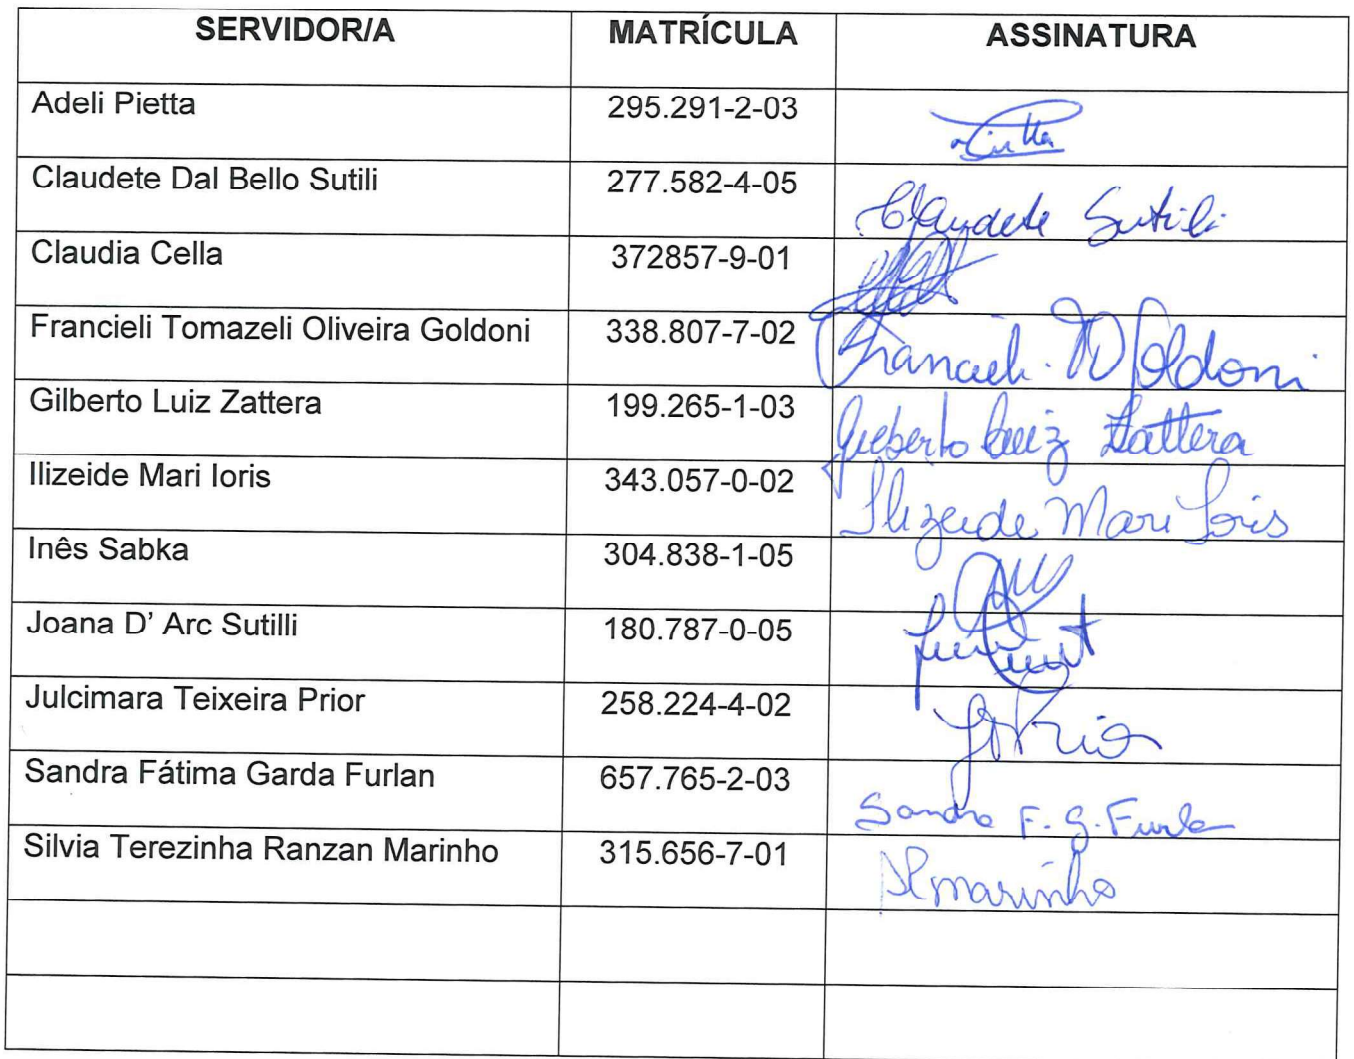 SERVIDOR/A MATRÍCULA ASSINATURA
Adeli Pietta 295.291-2-03
Claudete Dal Bello Sutili 277.582-4-05 Claudete Sutili
Claudia Cella 372857-9-01
Francieli Tomazeli Oliveira Goldoni 338.807-7-02 Francieli TO Goldoni
Gilberto Luiz Zattera 199.265-1-03 Gilberto Luiz Zattera
Ilizeide Mari Ioris 343.057-0-02 Ilizeide Mari Ioris
Inês Sabka 304.838-1-05
Joana D' Arc Sutilli 180.787-0-05
Julcimara Teixeira Prior 258.224-4-02
Sandra Fátima Garda Furlan 657.765-2-03 Sandra F. G. Furlan
Silvia Terezinha Ranzan Marinho 315.656-7-01